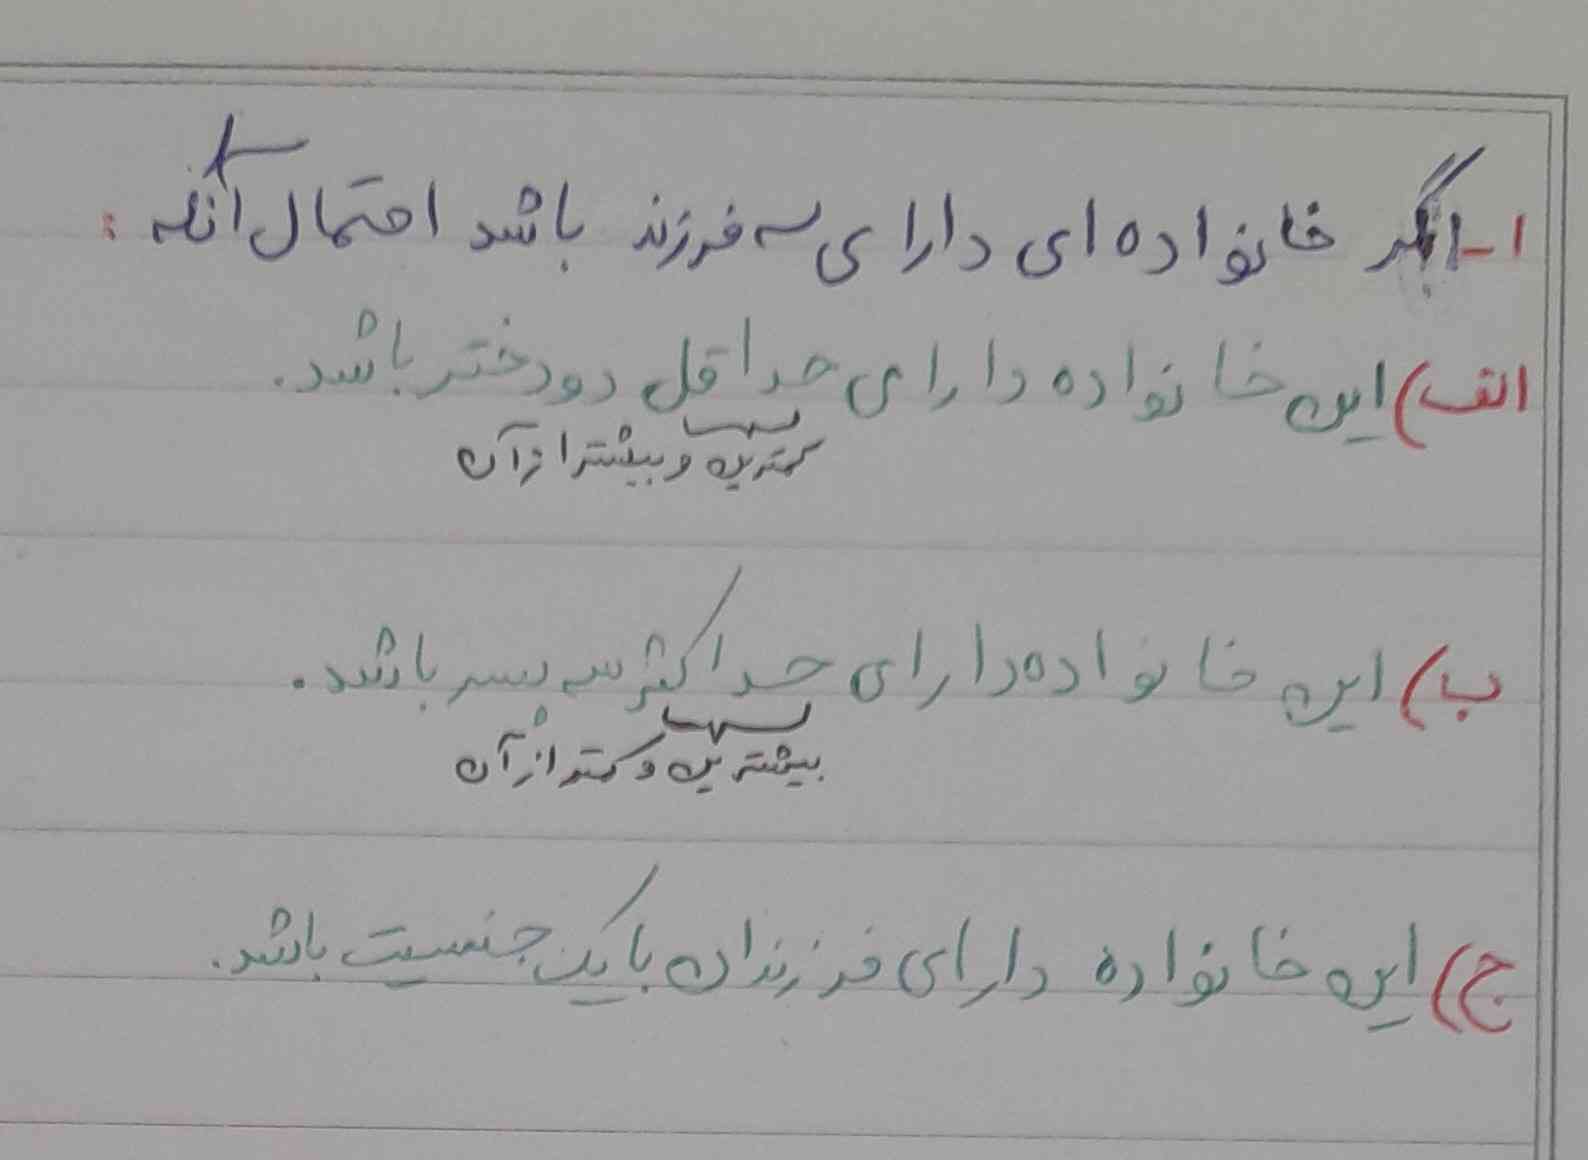 ۱- اگر خانواده ای دارای سه فرزند باشد احتمال آنکه :
الف) این خانواده دارای حداقل دو دختر باشد.
کمترین و بیشتر از آن
ب) این خانواده دارای حداکثر سه پسر باشد.
بیشترین و کمتر از آن
ج) این خانواده دارای فرزندان با یک جنسیت باشد.